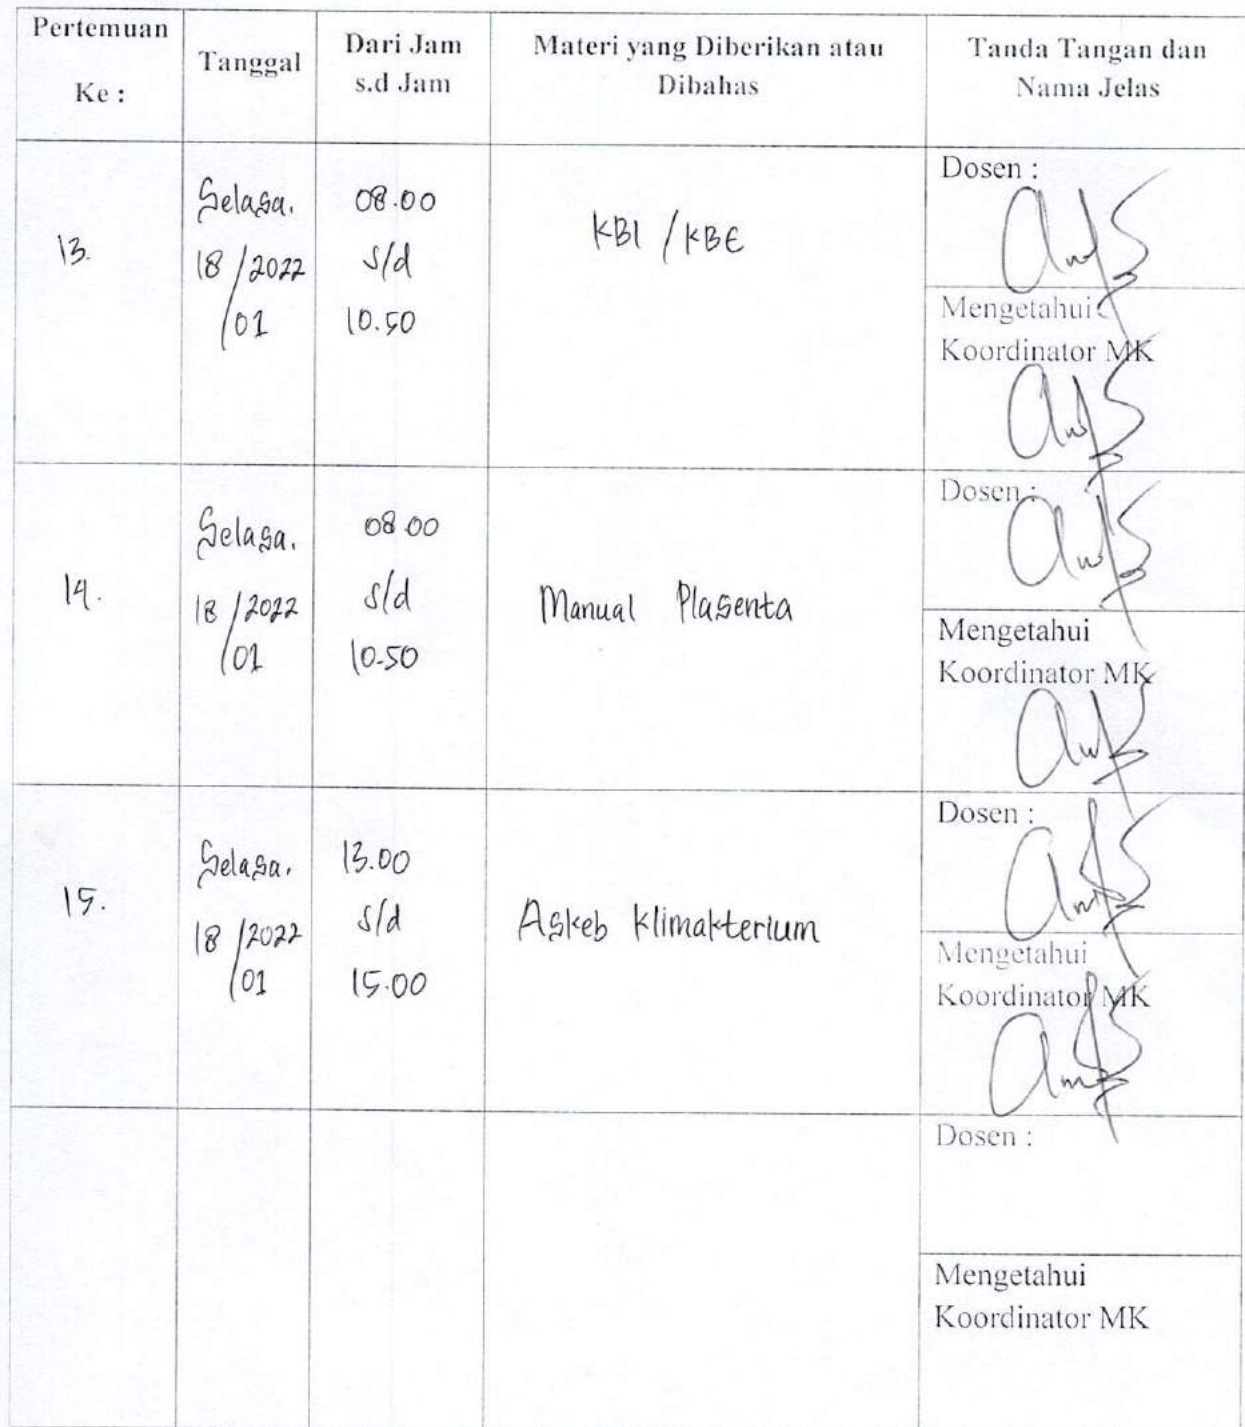 Pertemuan
Ke :
Tanggal
Dari Jam
s.d Jam
Materi yang Diberikan atau
Dibahas
Tanda Tangan dan
Nama Jelas
13.
Selasa.
18/2022
/01
08.00
s/d
10.50
KBI / KBE
Dosen :
Mengetahui
Koordinator MK
14.
Selasa.
18/2022
/01
08.00
s/d
10.50
Manual Plasenta
Dosen :
Mengetahui
Koordinator MK
15.
Selasa.
18/2022
/01
13.00
s/d
15.00
Askeb Klimakterium
Dosen :
Mengetahui
Koordinator MK
Dosen :
Mengetahui
Koordinator MK